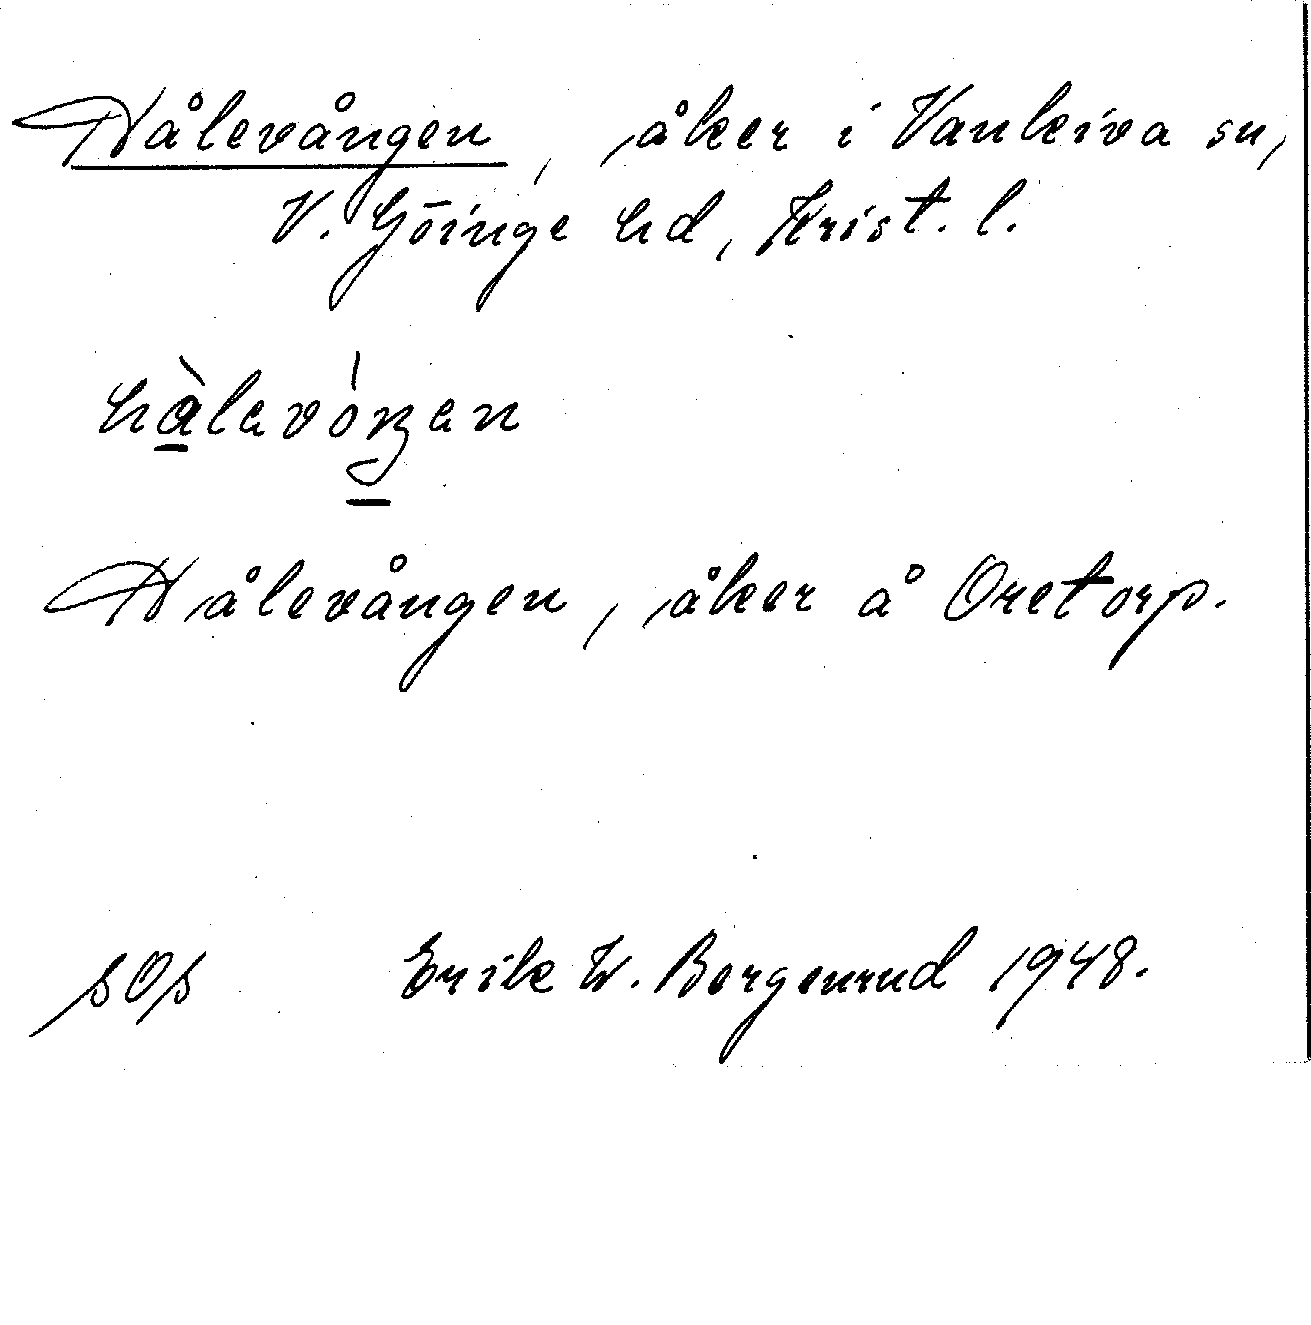 Hålevången, åker i Vankiva sn,
V. Göinge hd, Krist. l.
hàlevóŋen
Hålevången, åker å Oretorp.
sOs Erik W. Bergenrud 1948.